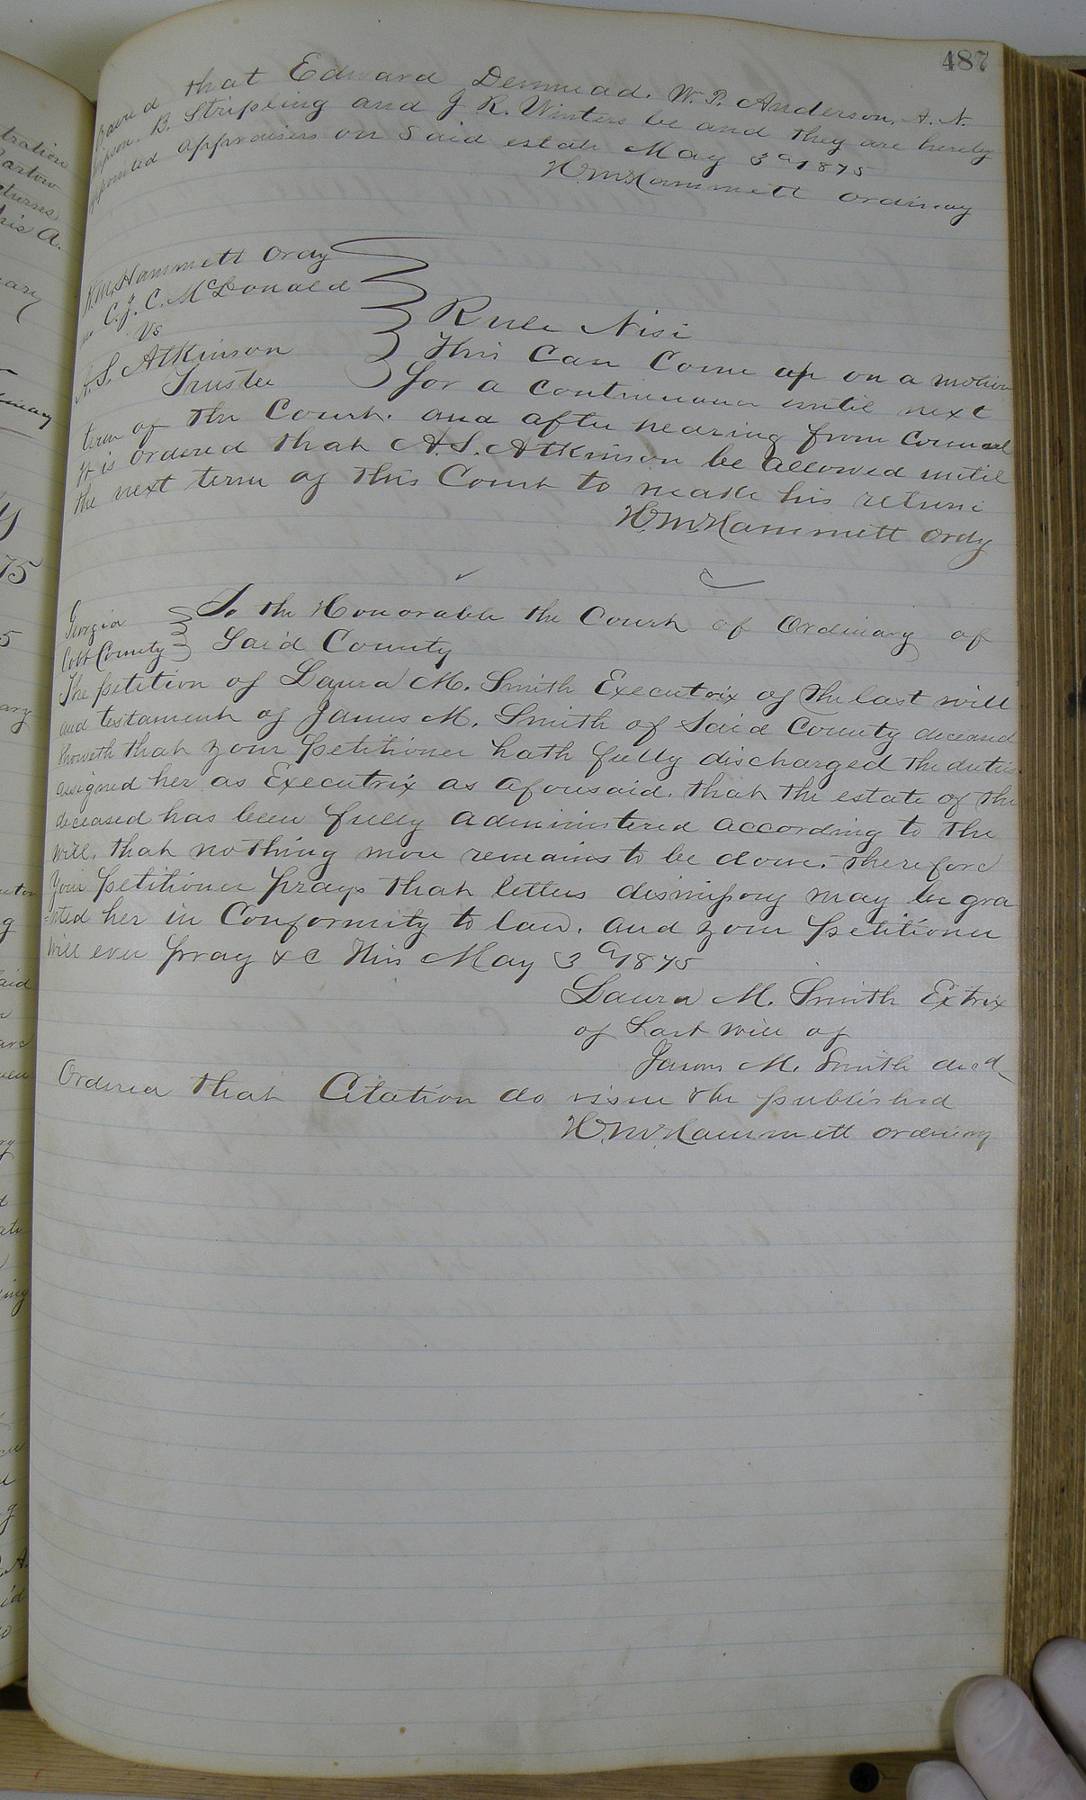 487
that Edward Denmead. W. P. Anderson, A. N.
Simpson. B. Stripling and J R. Winters be and they are hereby
appointed appraisers on said estate May 3d 1875
Wm Hammett Ordinary
Wm Hammett Ordy
C. J. C. McDonald
Vs
A. S. Atkinson
Trustee
Rule Nisi
This Case Come up on a motion
for a continuance until next
term of the Court. and after hearing from Counsel
It is ordered that A. S. Atkinson be allowed until
the next term of this Court to make his returns
Wm Hammett Ordy
Georgia
Cobb County
To the Honorable the Court of Ordinary of
Said County
The petition of Laura M. Smith Executrix of the last will
and testament of James M. Smith of Said County deceased
Showeth that your petitioner hath fully discharged the duties
assigned her as Executrix as aforesaid. that the estate of the
deceased has been fully administered according to the
will. that nothing more remains to be done. therefore
Your petitioner prays that letters dismissory may be gra
-nted her in Conformity to law. and your petitioner
will ever pray &c This May 3d 1875
Laura M. Smith Extrix
of Last will of
James M. Smith decd
Ordered that Citation do issue & be published
Wm Hammett ordinary